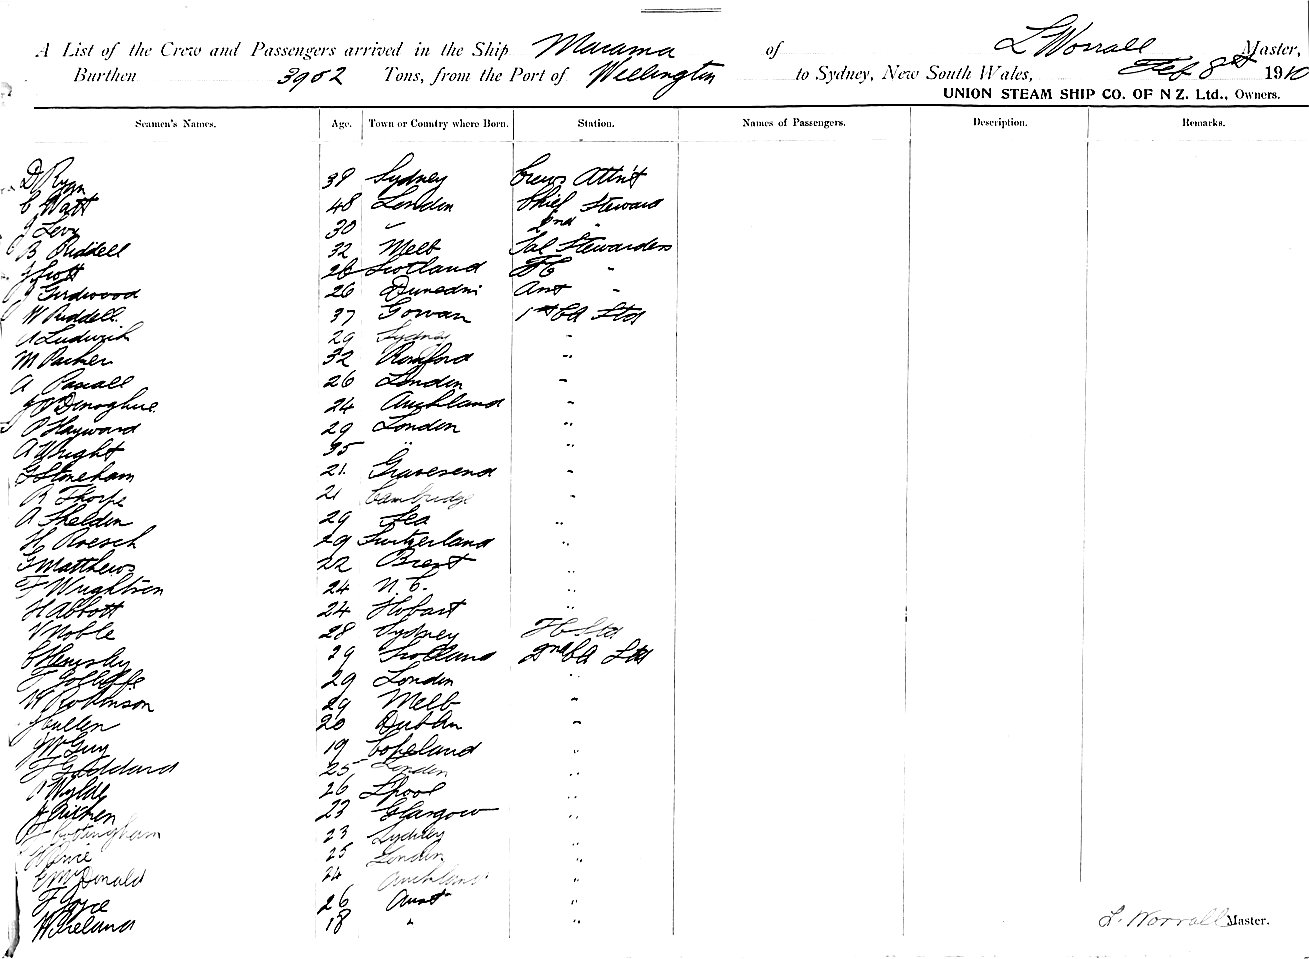 A List of the Crew and Passengers arrived in the Ship Marama of L Worrall Master,
Burthen 3902 Tons, from the Port of Wellington to Sydney, New South Wales, Feb 8th 1910
UNION STEAM SHIP CO. OF N Z. Ltd., Owners.
Seamen's Names. Age. Town or Country where Born. Station. Names of Passengers. Description. Remarks.
D Ryan 39 Sydney Crews Attn't
C Watt 48 London Chief Steward
J Levy 30 " 2nd "
B Riddell 32 Melb Sal Stewardess
J Scott 26 Scotland "
J Girdwood 26 Dunedin Asst "
W Riddell 37 Gowan 1st Cl Std
A Ludwich 29 Sydney "
M Parker 32 Romford "
A Pascall 26 London "
J O'Donoghue 24 Auckland "
P Hayward 29 London "
A Wright 35 " "
G Stoneham 21 Gravesend "
R Thorpe 21 Cambridge "
A Sheldon 29 Sea "
H Roesch 29 Switzerland "
G Matthews 22 Brent "
F Wrightson 24 N. C. "
H Abbott 24 Hobart "
V Noble 28 Sydney Std
C Hemsley 29 Scotland 2nd Cl Std
29 London "
W Robinson 29 Melb "
J Cullen 20 Dublin "
J McGuy 19 Copeland "
F Goddard 25 London "
Wylde 26 L'pool "
J Aitken 23 Glasgow "
23 Sydney "
25 London "
McDonald 24 Auckland "
F Joyce 26 Aust "
W Ireland 18 " "
L. Worrall Master.